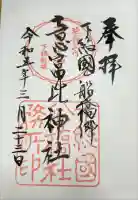 奉拝
下総國船橋郷
意富比神社
令和五年三月二十三日